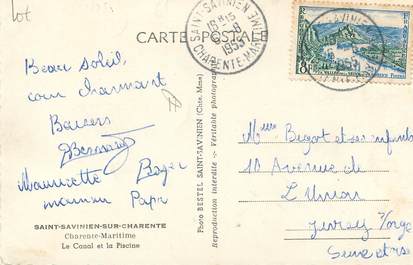 lot
CARTE POSTALE
SAINT-SAVINIEN
CHARENTE-MARME
1955
8F
Beau soleil,
coin charmant
Baisers
Bernard
Mauricette Roger
maman Papa
SAINT-SAVINIEN-SUR-CHARENTE
Charente-Maritime
Le Canal et la Piscine
Photo BESTEL SAINT-SAVINIEN (Chte. Mme)
Reproduction interdite - Véritable photographie
Mme Begot et ses enfants
10 Avenue de
L'Union
Juvisy s/orge
Seine et Oise